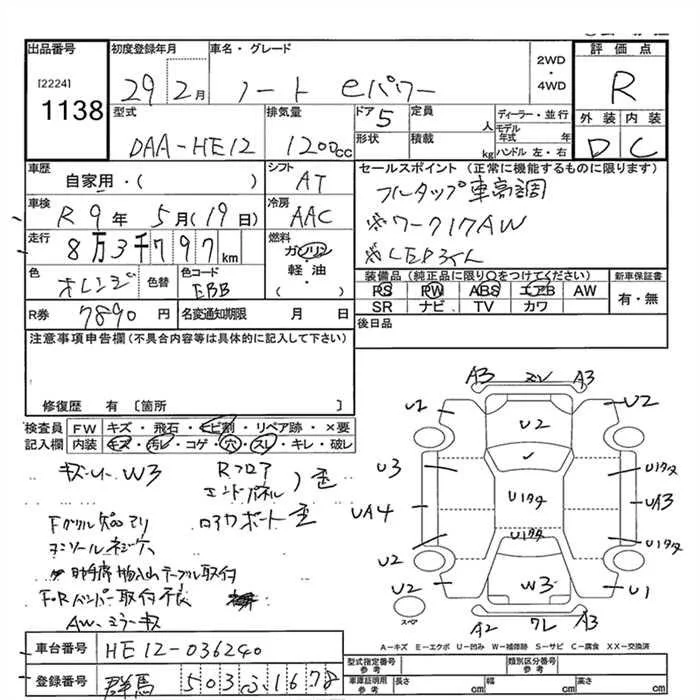 出品番号
[2224]
1138
初度登録年月
29年2月
車名・グレード
ノート eパワー
2WD
・
4WD
評価点
R
外装 内装
D C
型式
DAA-HE12
排気量
1200cc
ドア 5
定員
人
ディーラー・並行
モデル年式 年
形状
積載
kg
ハンドル 左・右
車歴
自家用・( )
シフト
AT
車検
R9年5月(19日)
冷房
AAC
走行
8万3千797km
燃料
ガソリン
軽油
( )
色
オレンジ
色替
色コード
EBB
R券
7890円
名変通知期限 月 日
セールスポイント(正常に機能するものに限ります)
フルタップ車高調
※ワーク17AW
装備品(純正品に限り○をつけてください)
新車保証書
PS PW ABS エアB AW
SR ナビ TV カワ
有・無
後日品
注意事項申告欄(不具合内容等は具体的に記入して下さい)
修復歴 有〔箇所 〕
検査員 記入欄
FW キズ・飛石・ヒビ割・リペア跡・×要
内装 キズ・汚レ・コゲ・穴・スレ・キレ・破レ
W3
Rフロア
エンドパネル
コンソールネジ穴
助手席物入レテーブル取付
F・Rバンパー取付不良
A3 A3
U1 U2 U2
U3 U1タタ
UA4 U1タタ UA3
U1タタ
U2 U1タタ
U2 W3 U1
スペア
A2 ワレ A3
A-キズ E-エクボ U-凹み W-補修跡 S-サビ C-腐食 XX-交換済
車台番号
HE12-036240
登録番号
群馬 503 ふ 1678
型式指定番号
参考
類別区分番号
参考
車庫証明用
参考
長さ cm
幅 cm
高さ cm